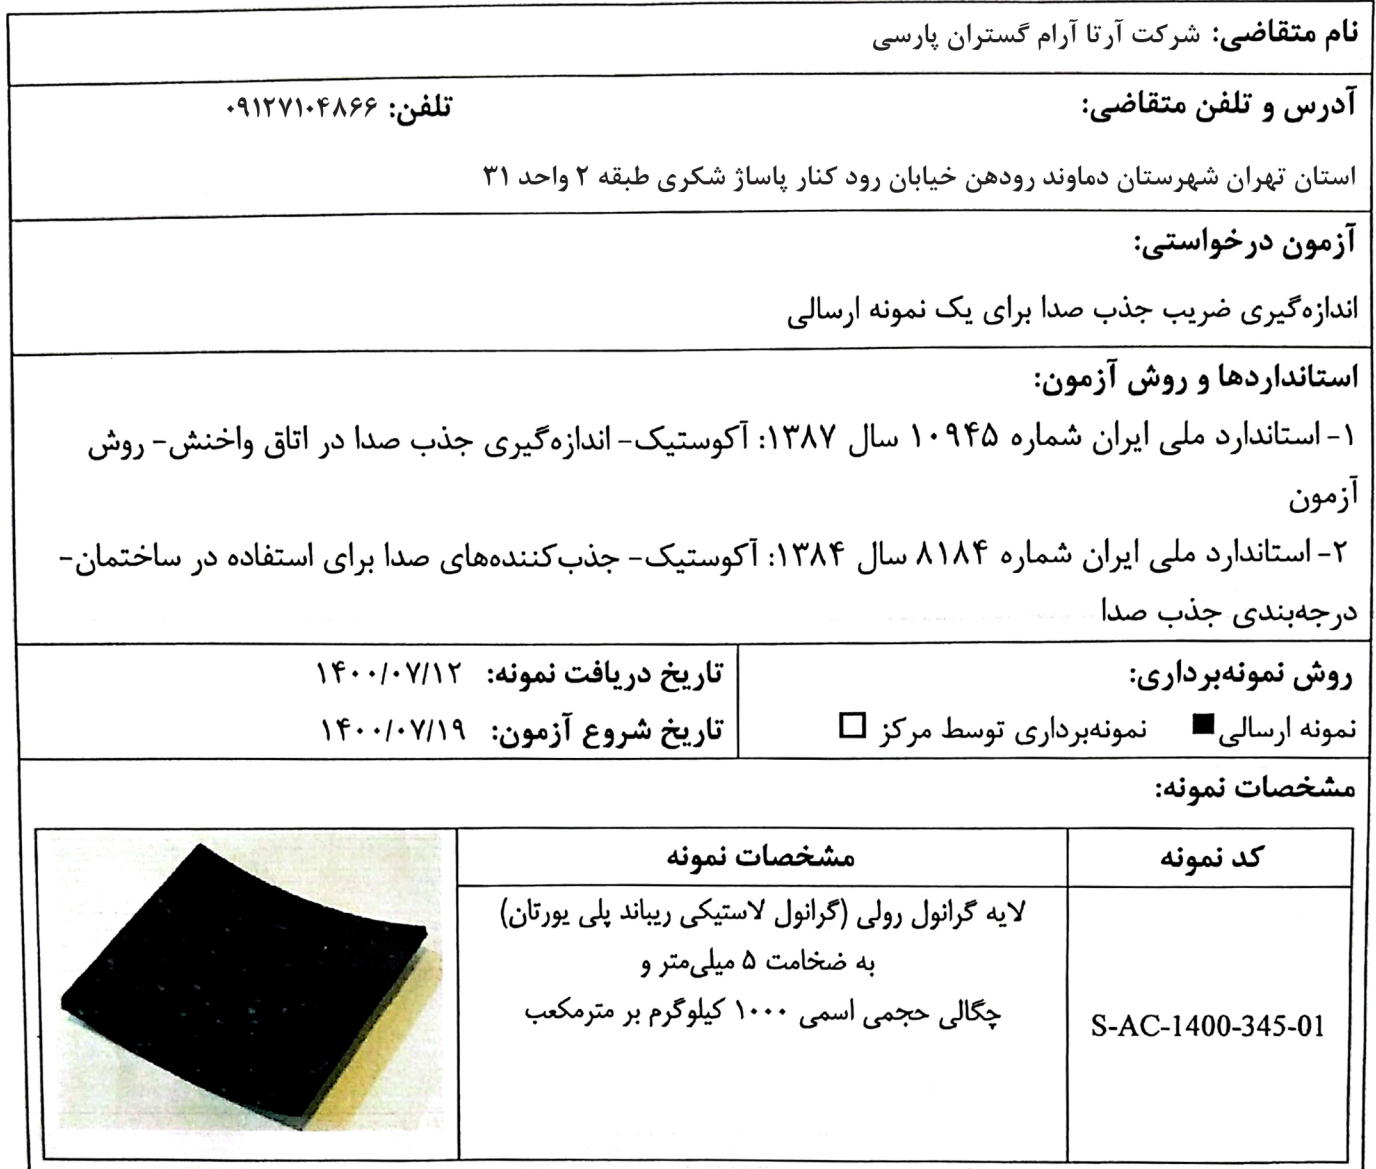 نام متقاضی: شرکت آرتا آرام گستران پارسی
آدرس و تلفن متقاضی: تلفن: ۰۹۱۲۷۱۰۴۸۶۶
استان تهران شهرستان دماوند رودهن خیابان رود کنار پاساژ شکری طبقه ۲ واحد ۳۱
آزمون درخواستی:
اندازه‌گیری ضریب جذب صدا برای یک نمونه ارسالی
استانداردها و روش آزمون:
۱- استاندارد ملی ایران شماره ۱۰۹۴۵ سال ۱۳۸۷: آکوستیک- اندازه‌گیری جذب صدا در اتاق واخنش- روش
آزمون
۲- استاندارد ملی ایران شماره ۸۱۸۴ سال ۱۳۸۴: آکوستیک- جذب‌کننده‌های صدا برای استفاده در ساختمان-
درجه‌بندی جذب صدا
روش نمونه‌برداری:
نمونه ارسالی■ نمونه‌برداری توسط مرکز □
تاریخ دریافت نمونه: ۱۴۰۰/۰۷/۱۲
تاریخ شروع آزمون: ۱۴۰۰/۰۷/۱۹
مشخصات نمونه:
کد نمونه
مشخصات نمونه
S-AC-1400-345-01
لایه گرانول رولی (گرانول لاستیکی ریباند پلی یورتان)
به ضخامت ۵ میلی‌متر و
چگالی حجمی اسمی ۱۰۰۰ کیلوگرم بر مترمکعب